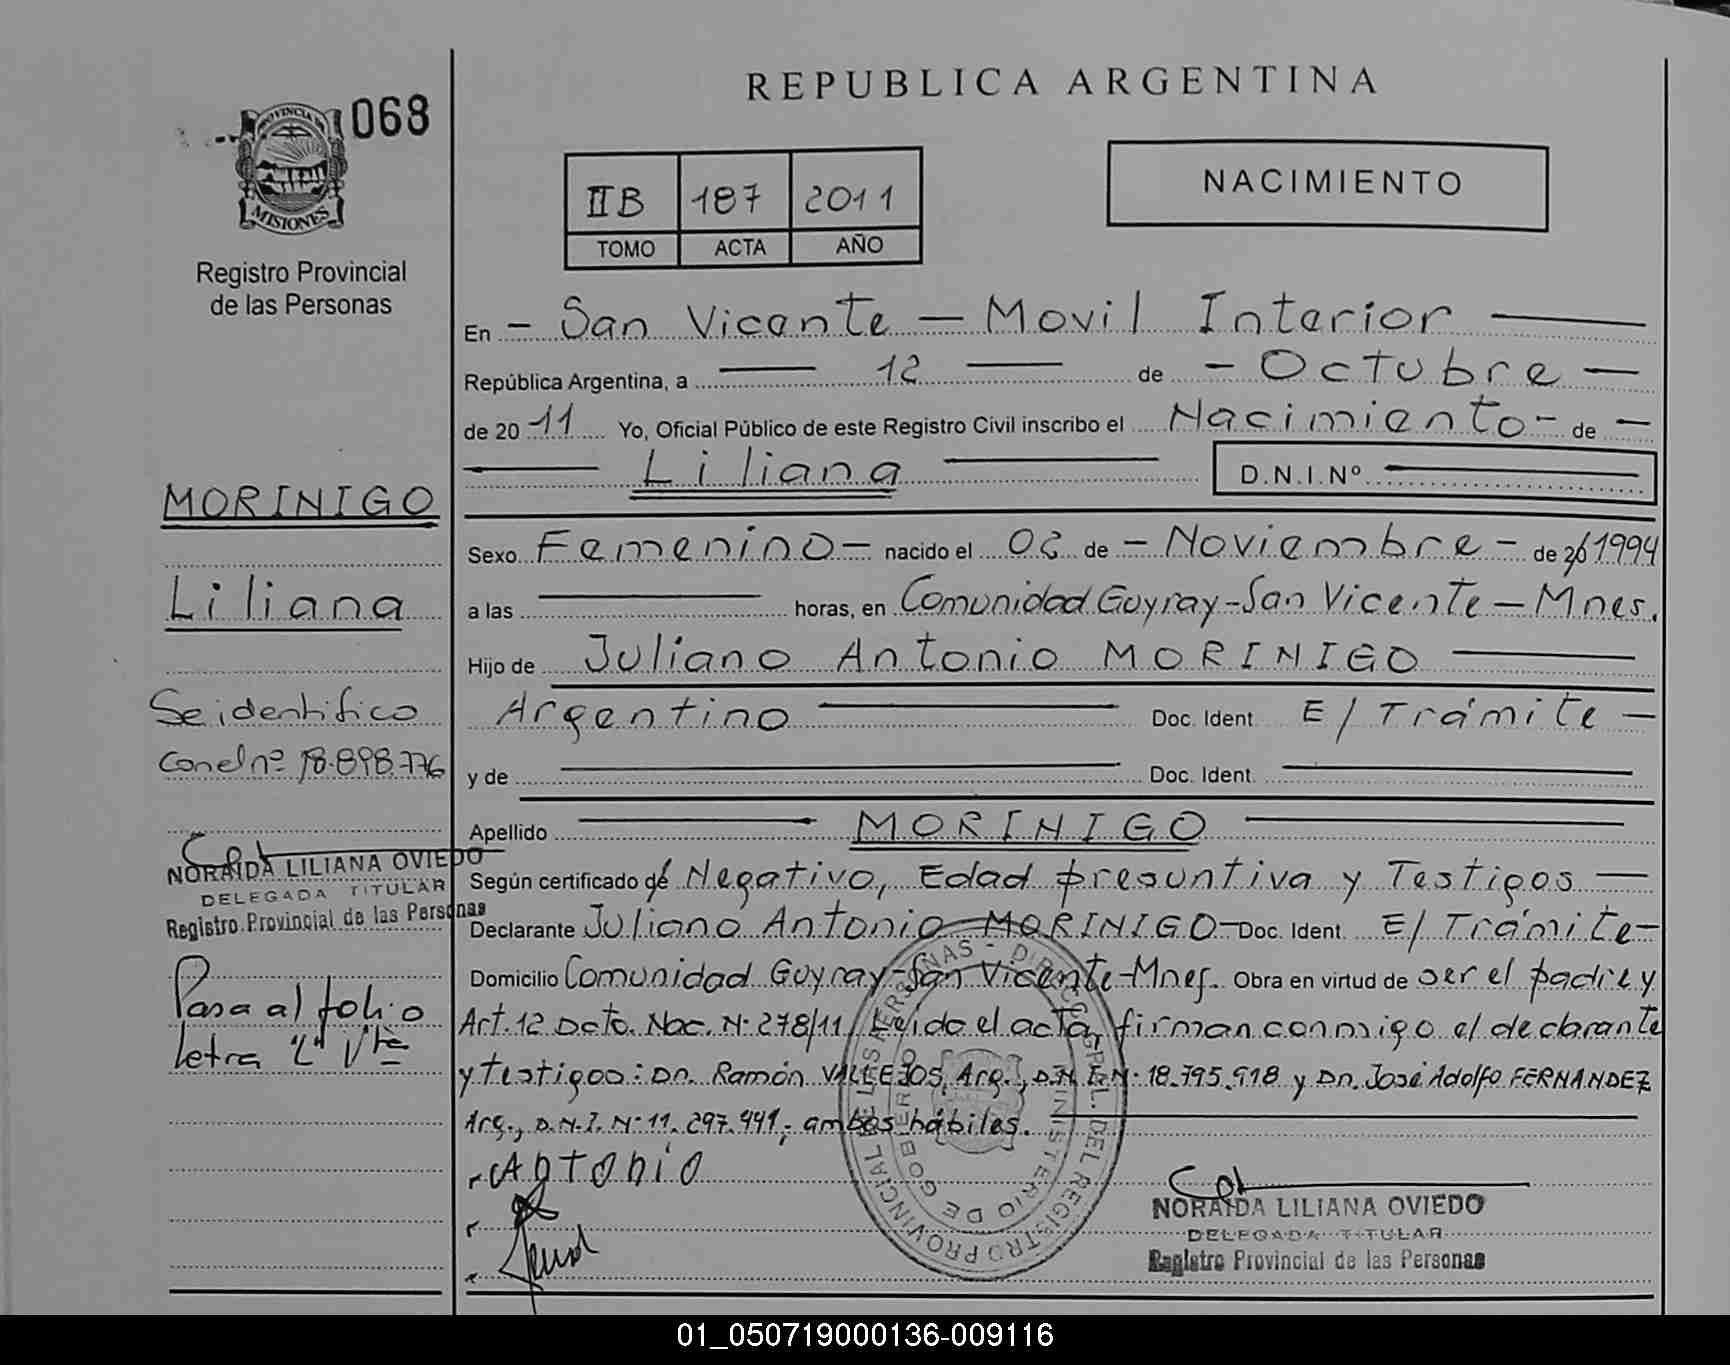 REPUBLICA ARGENTINA
068
PROVINCIA DE
MISIONES
Registro Provincial
de las Personas
IIB 187 2011
TOMO ACTA AÑO
NACIMIENTO
En - San Vicente - Movil Interior
República Argentina, a 12 de - Octubre -
de 20 11 Yo, Oficial Público de este Registro Civil inscribo el Nacimiento - de -
Liliana D.N.I.Nº
MORINIGO
Sexo Femenino - nacido el 02 de - Noviembre - de 20 1994
Liliana
a las horas, en Comunidad Guyray - San Vicente - Mnes.
Hijo de Juliano Antonio MORINIGO
Se identifico
Argentino Doc. Ident. E/Trámite -
con el nº 18.898.776
y de Doc. Ident.
Apellido MORINIGO
NORAIDA LILIANA OVIEDO
DELEGADA TITULAR
Registro Provincial de las Personas
Según certificado de Negativo, Edad presuntiva y Testigos
Declarante Juliano Antonio MORINIGO - Doc. Ident. E/Trámite -
Domicilio Comunidad Guyray - San Vicente - Mnes. Obra en virtud de ser el padre y
Pasa al folio
letra "L" Vta
Art. 12 Dcto. Nac. Nº 278/11 Leido el acta, firman conmigo el declarante
y testigos: Dn. Ramón VALLEJOS, Arg., D.N.I. Nº 18.795.918 y Dn. José Adolfo FERNANDEZ
Arg., D.N.I. Nº 11.297.441; ambos hábiles.
Antonio
DIRECC. GRAL. DEL REGISTRO PROVINCIAL DE LAS PERSONAS -
MINISTERIO DE GOBIERNO
NORAIDA LILIANA OVIEDO
DELEGADA TITULAR
Registro Provincial de las Personas
01_050719000136-009116